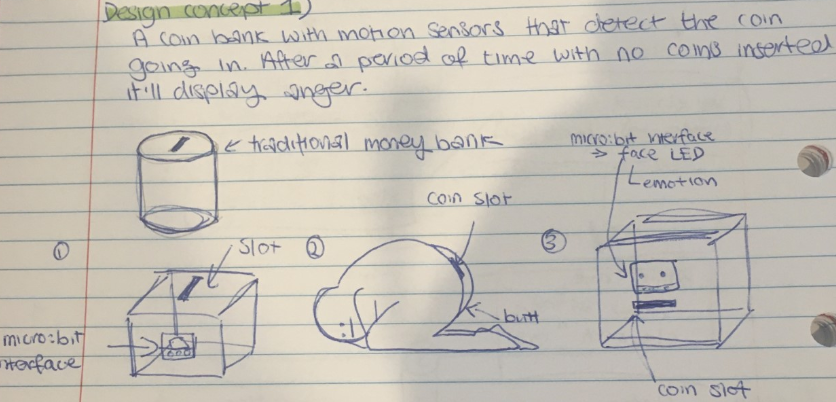 Design concept 1)
A coin bank with motion sensors that detect the coin
going in. After a period of time with no coins inserted
it'll display anger.
← traditional money bank
micro:bit nterface
→ face LED
emotion
coin slot
① slot ② ③
butt
micro:bit
nterface
coin slot